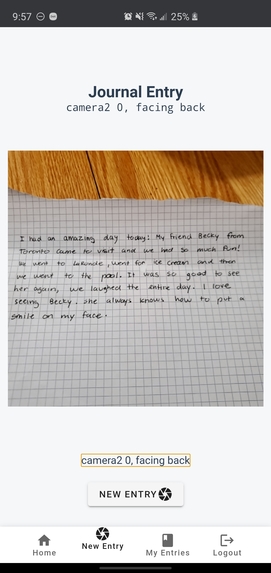 9:57
25%
Journal Entry
camera2 0, facing back
I had an amazing day today! My friend Becky from
Toronto came to visit and we had so much fun!
We went to , went for ice cream and then
we went to the pool. It was so good to see
her again, we laughed the entire day. I love
seeing Becky. she always knows how to put a
smile on my face.
camera2 0, facing back
NEW ENTRY
Home
New Entry
My Entries
Logout